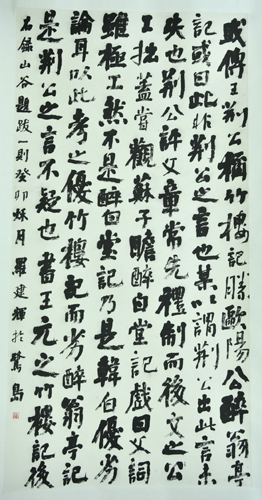 或傳王荊公稱竹樓記勝歐陽公醉翁亭
記或曰此非荊公之言也某以謂荊公出此言未
失也荊公評文章常先禮制而後文之公
工拙蓋嘗觀蘇子瞻醉白堂記戲曰文詞
雖極工然不是醉白堂記乃是韓白優劣
論耳以此考之優竹樓記而劣醉翁亭記
是荊公之言不疑也書王元之竹樓記後
右錄山谷題跋一則癸卯秋月羅建輝於鷺島